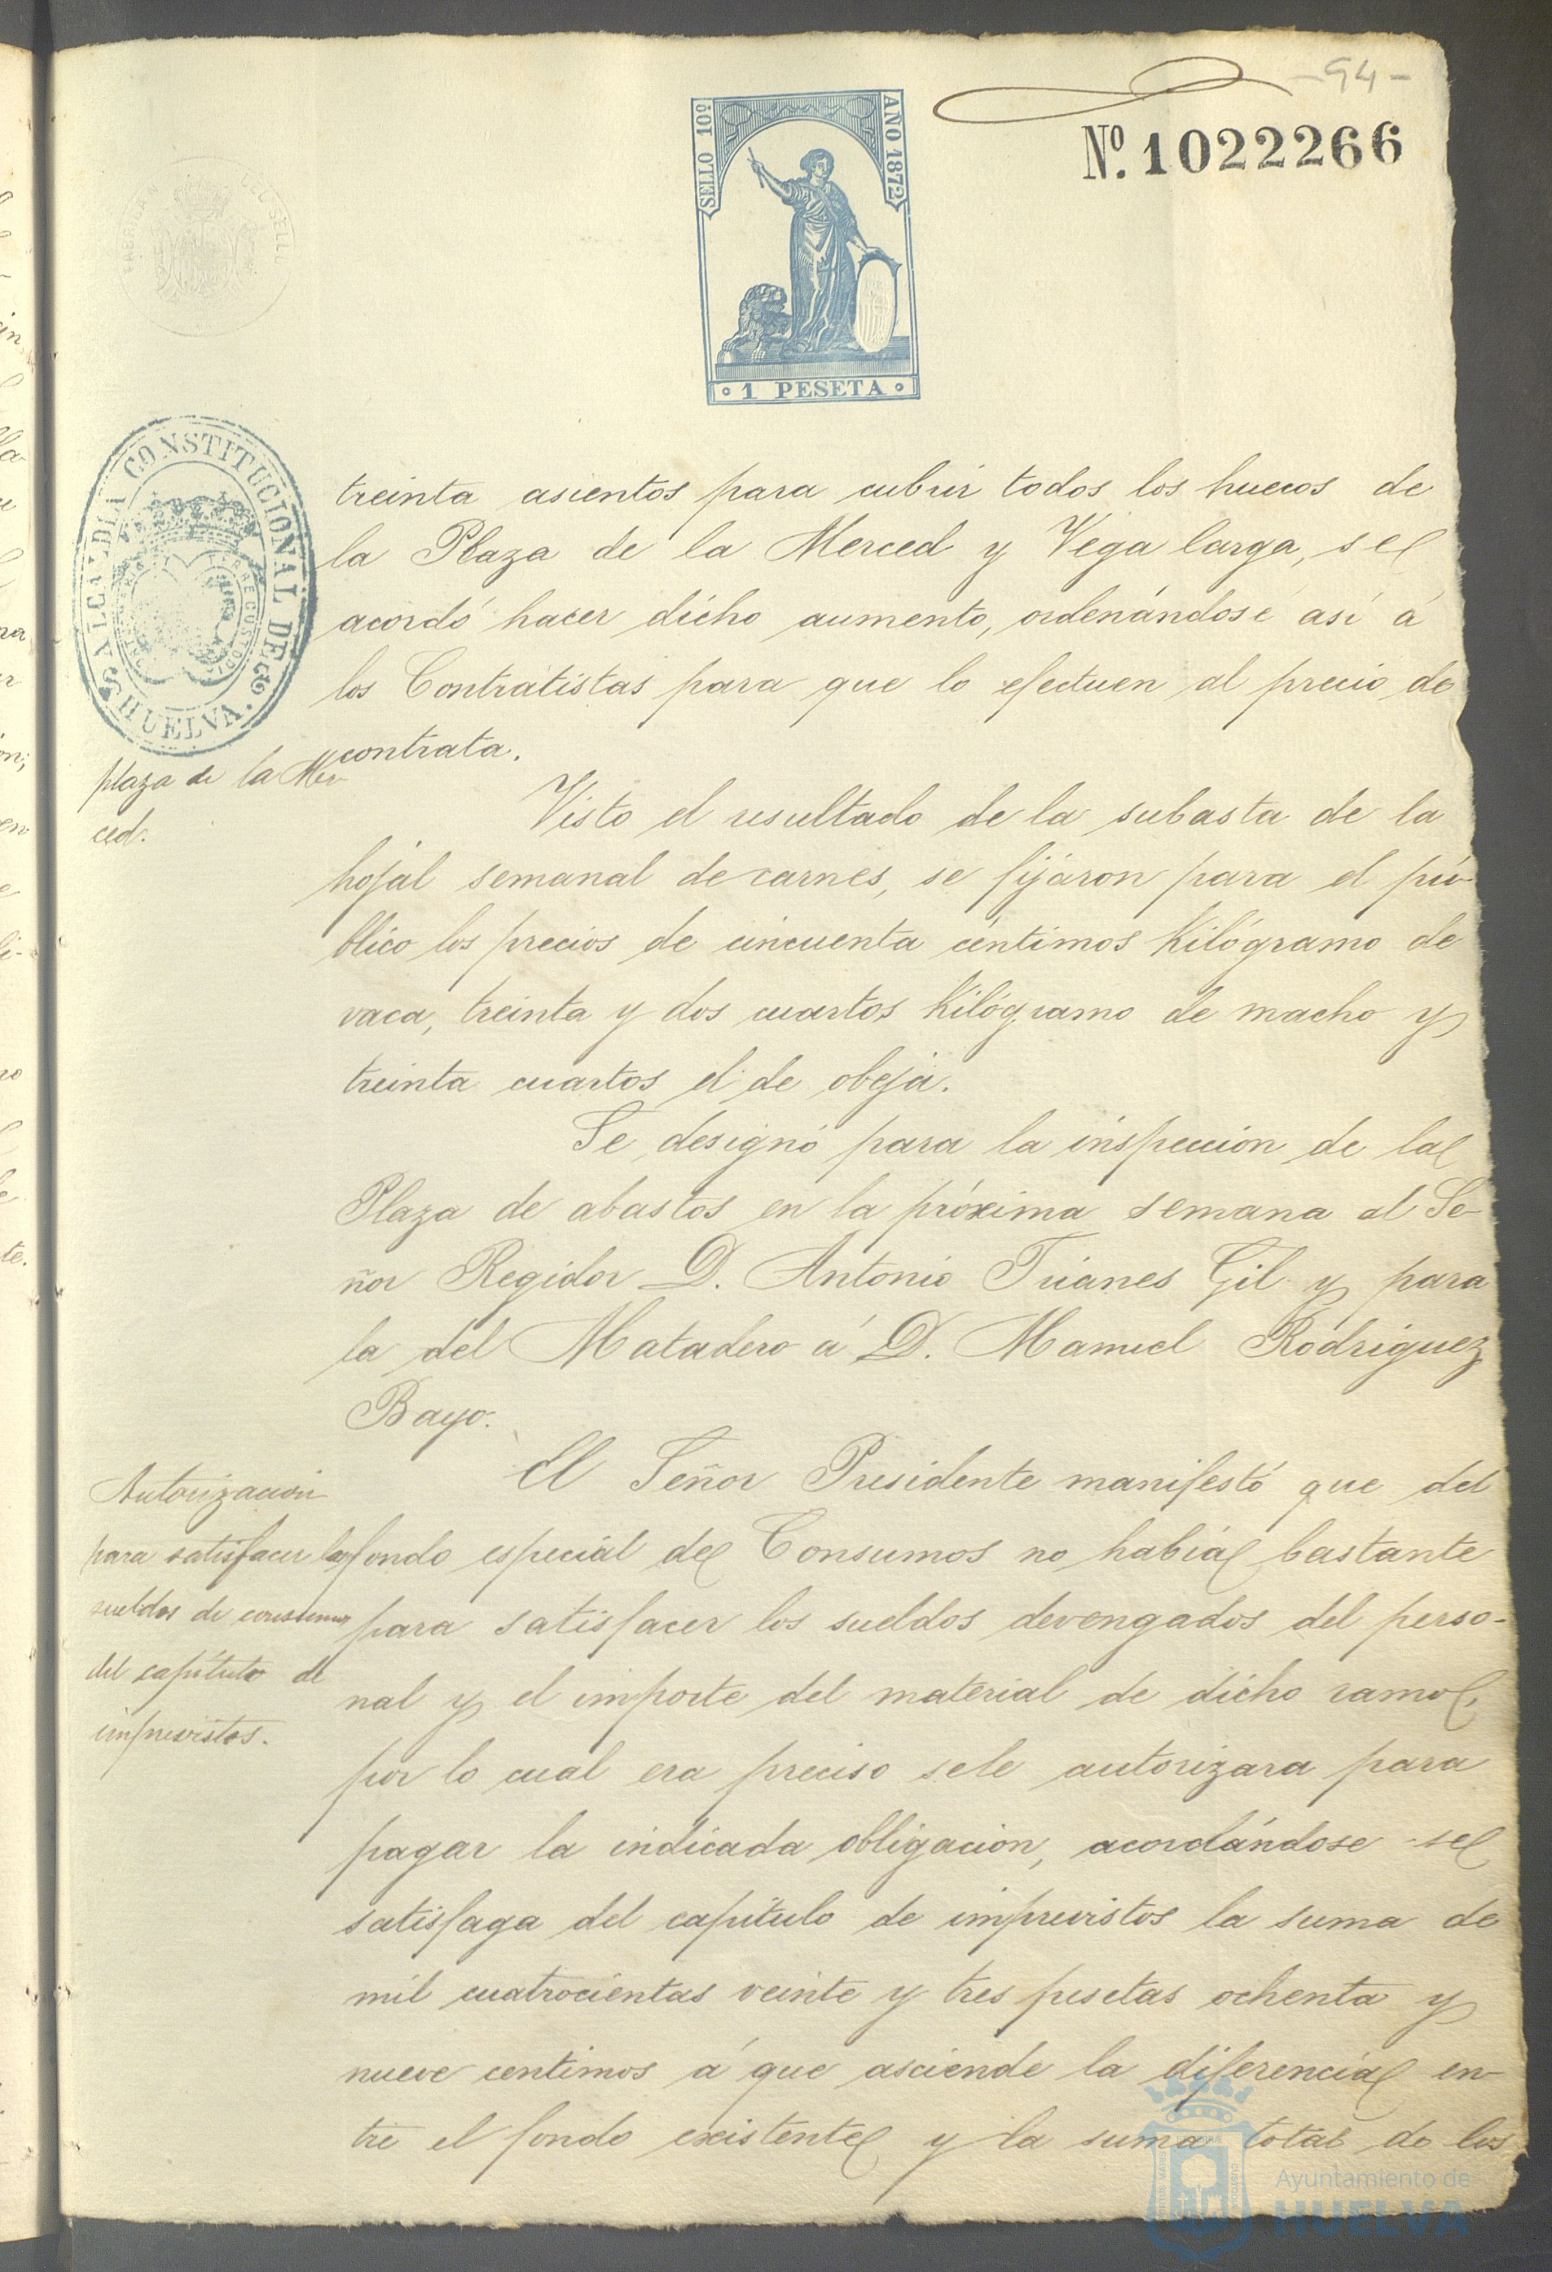 -94-
Nº. 1022266
SELLO 10º
AÑO 1872
1 PESETA
ALCALDIA CONSTITUCIONAL DE HUELVA.
treinta asientos para cubrir todos los huecos de
la Plaza de la Merced y Vega larga, se
acordó hacer dicho aumento, ordenándose así á
los Contratistas para que lo efectuen al precio de
contrata.
plaza de la Mer
ced.
Visto el resultado de la subasta de la
hoja semanal de carnes, se fijaron para el pú-
blico los precios de cincuenta céntimos kilógramo de
vaca, treinta y dos cuartos kilógramo de macho y
treinta cuartos el de obeja.
Se designó para la inspección de la
Plaza de abastos en la próxima semana al Se-
ñor Regidor D. Antonio Trianes Gil y para
la del Matadero á D. Manuel Rodriguez
Bayo.
Autorización
para satisfacer los
sueldos de consumos
del capítulo de
imprevistos.
El Señor Presidente manifestó que del
fondo especial de Consumos no había bastante
para satisfacer los sueldos devengados del perso-
nal y el importe del material de dicho ramo,
por lo cual era preciso sele autorizara para
pagar la indicada obligación, acordándose se
satisfaga del capítulo de imprevistos la suma de
mil cuatrocientas veinte y tres pesetas ochenta y
nueve centimos á que asciende la diferencia en-
tre el fondo existente y la suma total de los
Ayuntamiento de
HUELVA